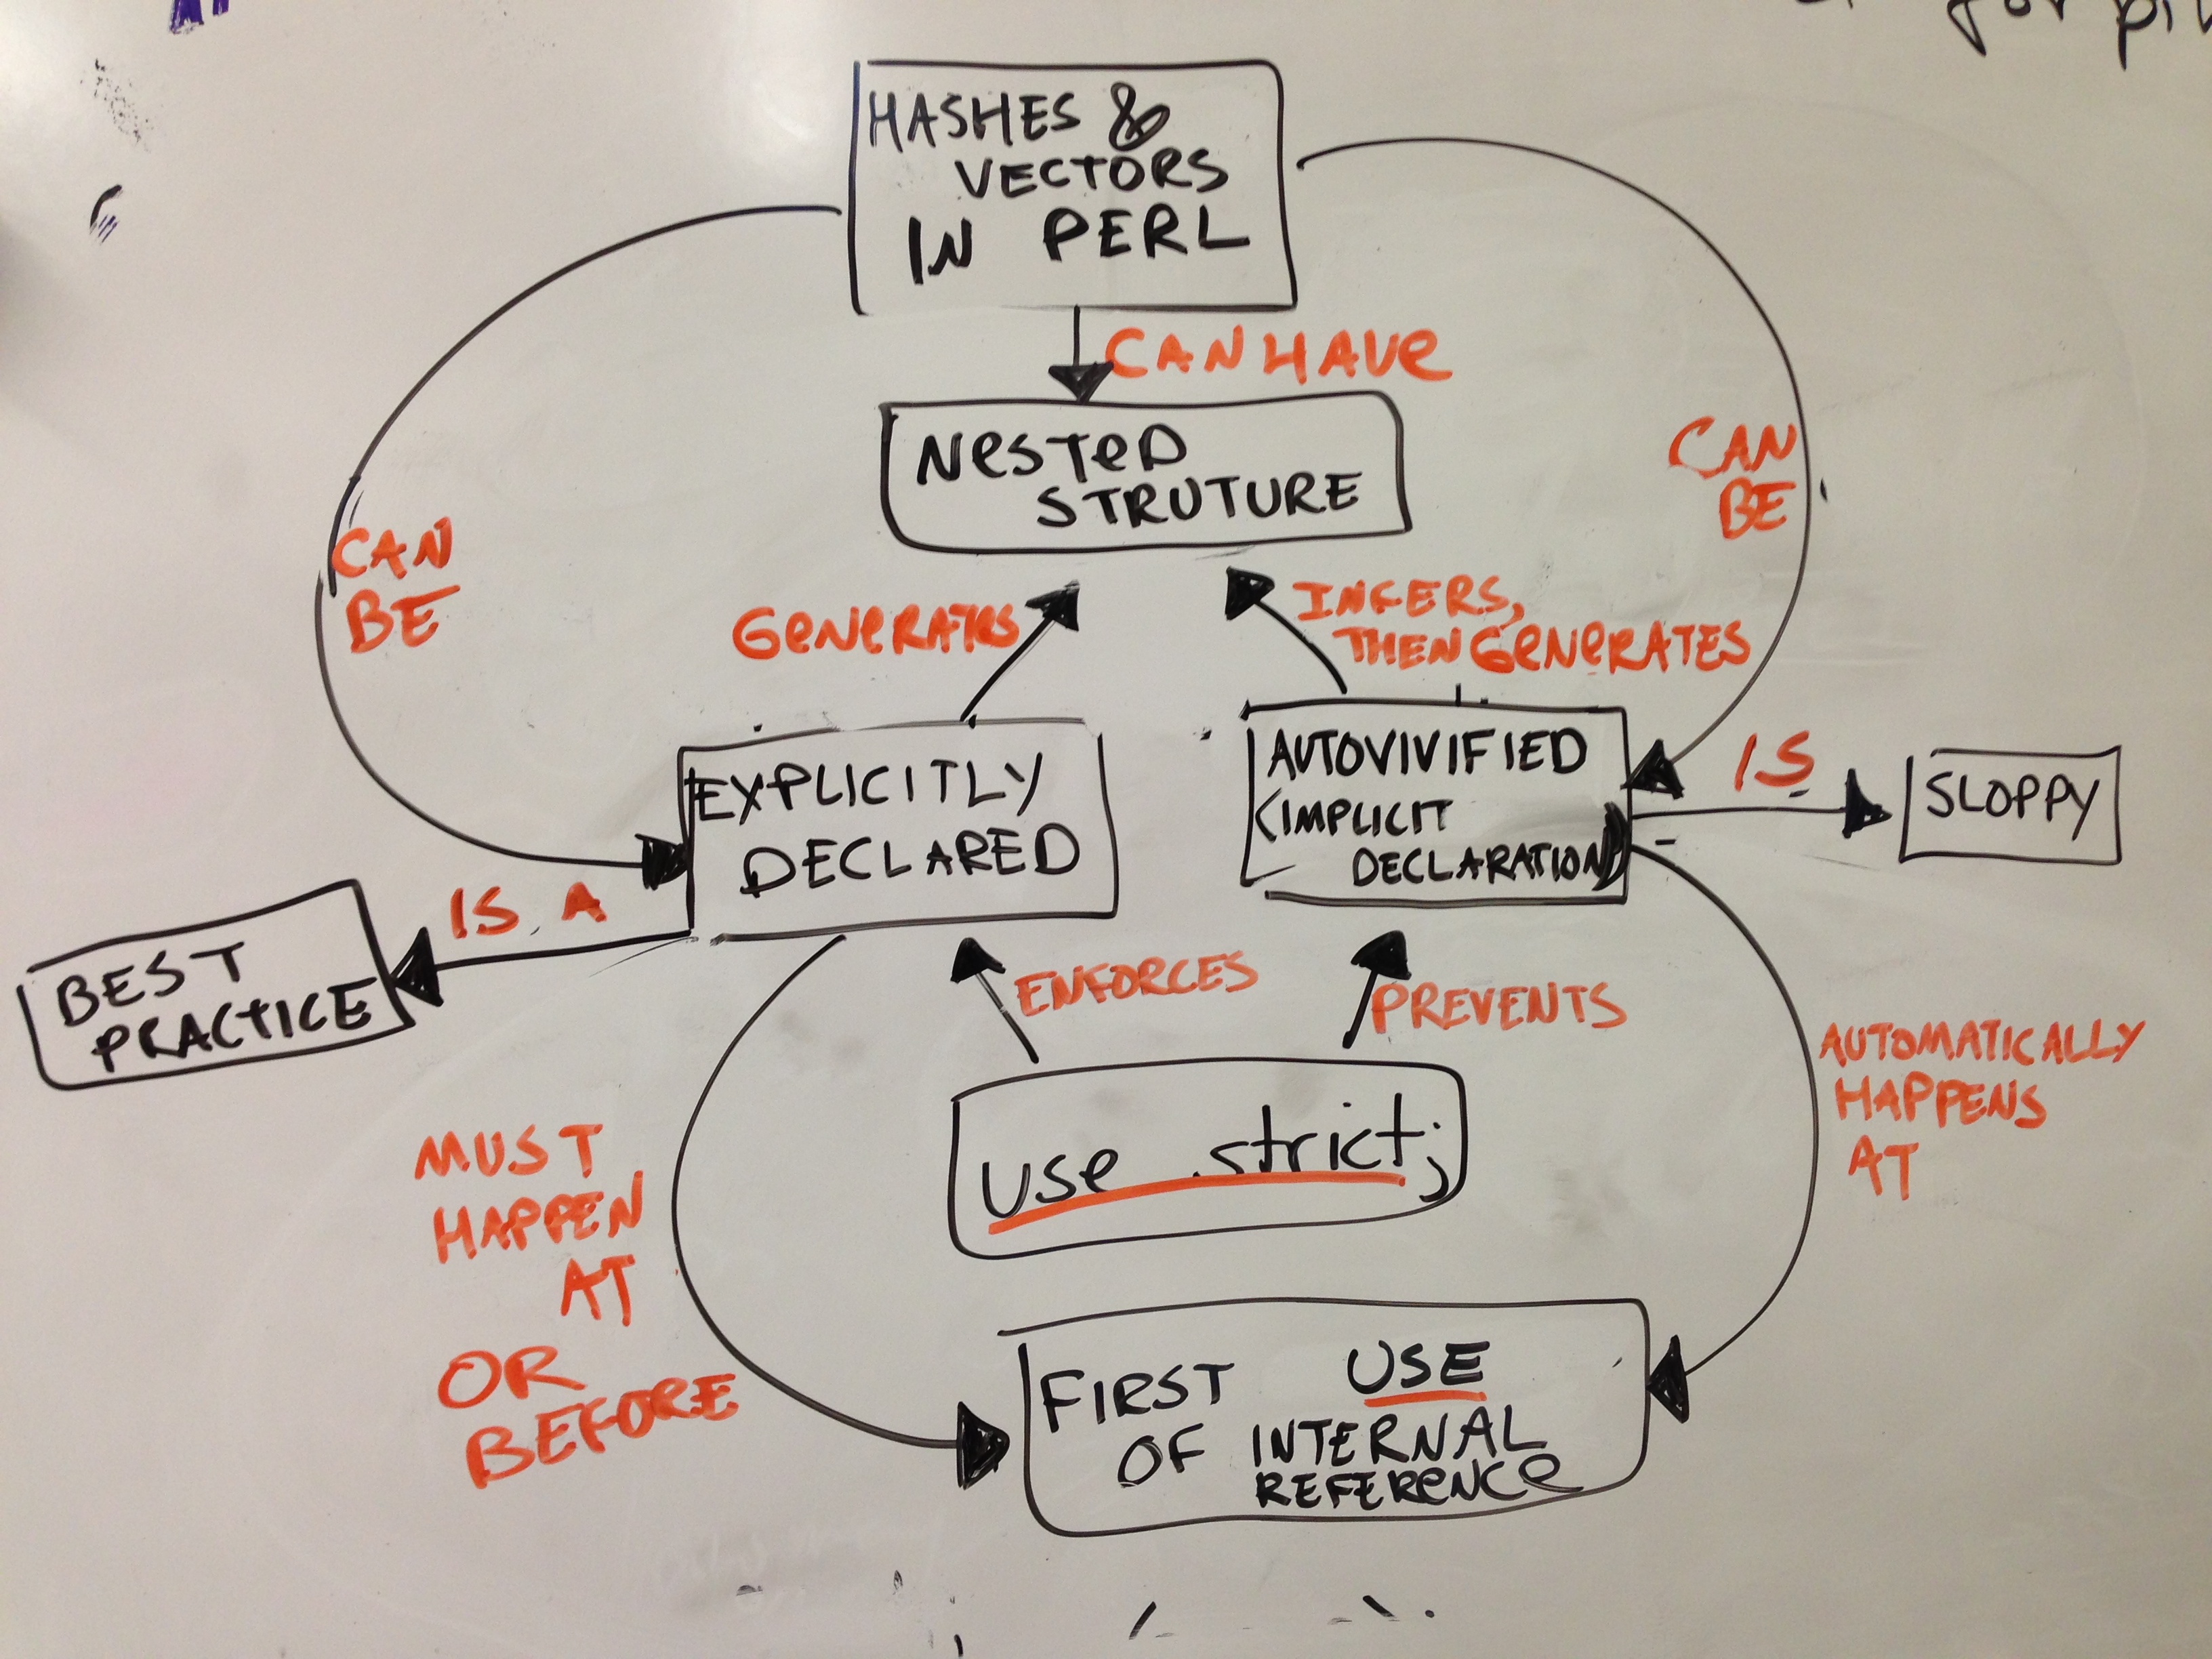 HASHES &
VECTORS
IN PERL
CAN HAVE
NESTED
STRUTURE
CAN
BE
CAN
BE
GENERATES
INFERS,
THEN GENERATES
EXPLICITLY
DECLARED
AUTOVIVIFIED
(IMPLICIT
DECLARATION)
IS
SLOPPY
IS A
BEST
PRACTICE
ENFORCES
PREVENTS
use strict;
MUST
HAPPEN
AT
OR
BEFORE
AUTOMATICALLY
HAPPENS
AT
FIRST USE
OF INTERNAL
REFERENCE